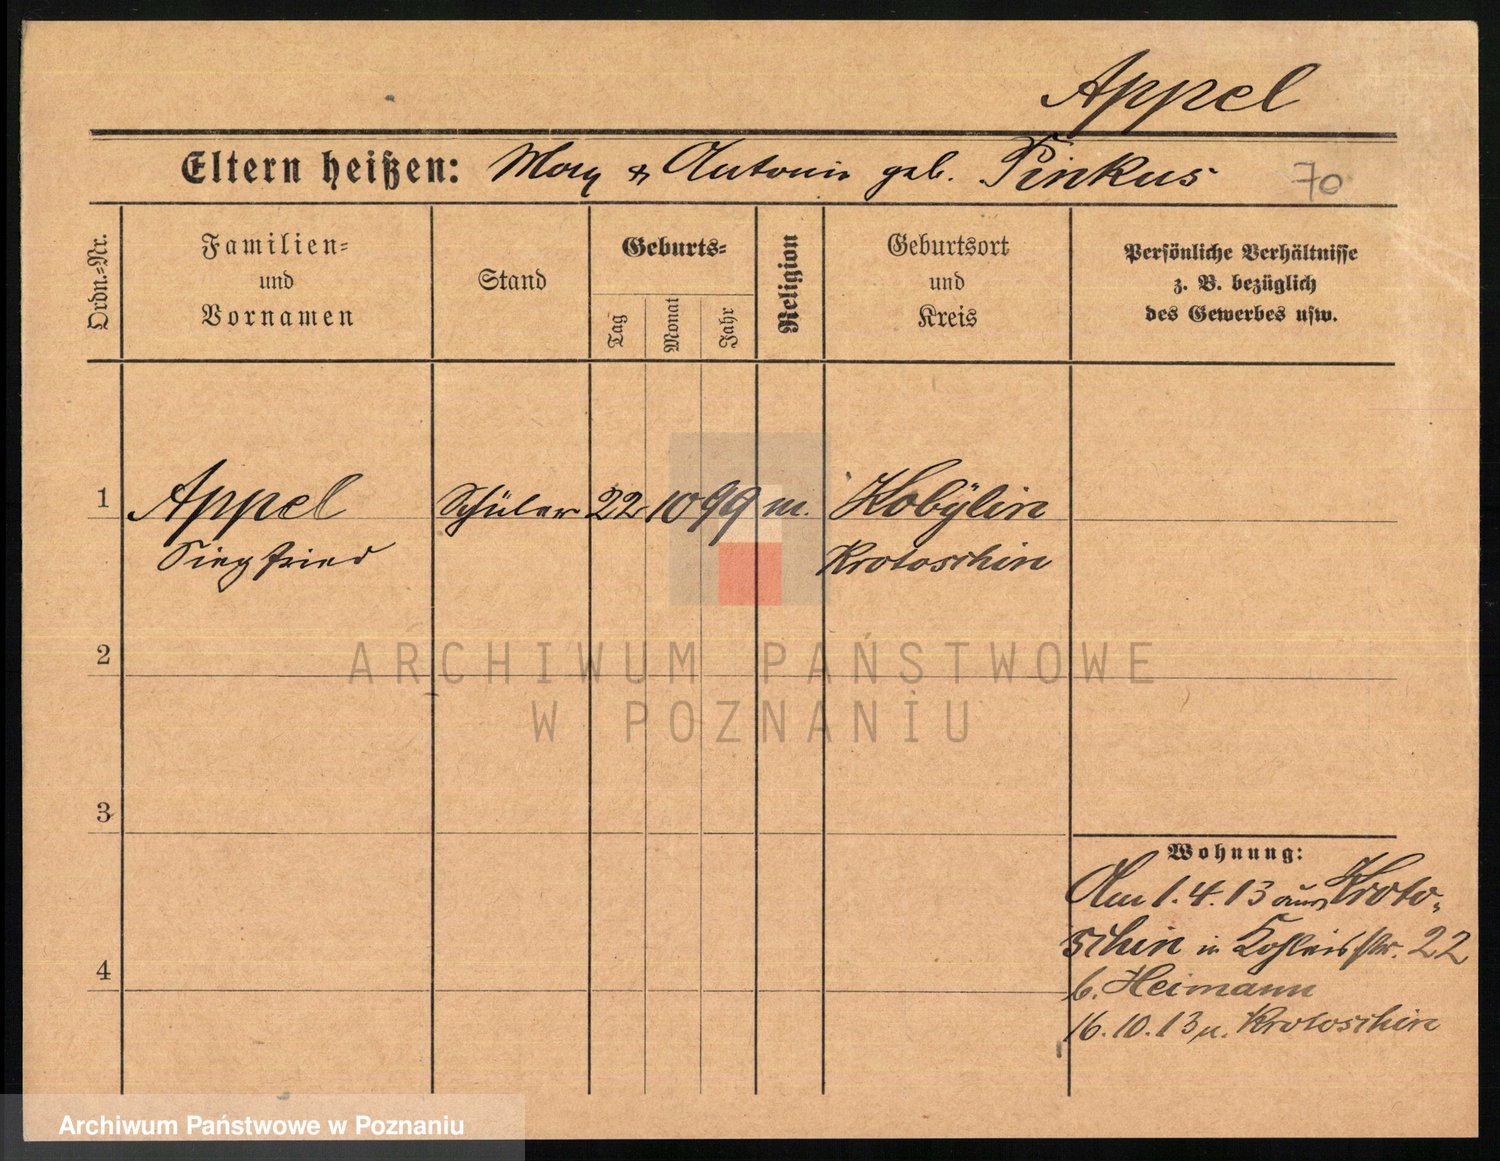 Appel
Eltern heißen: Max & Antonie geb. Pinkus 70
Ordn.-Nr.
Familien- und Vornamen
Stand
Geburts-
Tag
Monat
Jahr
Religion
Geburtsort und Kreis
Persönliche Verhältnisse
z. B. bezüglich
des Gewerbes usw.
1 Appel Schüler 22 10 99 m. Kobylin
Siegfried Krotoschin
2
ARCHIWUM PAŃSTWOWE
W POZNANIU
3
Wohnung:
Am 1.4.13 aus Kroto-
schin in str. 22
4
b. Heimann
16.10.13 n. Krotoschin
Archiwum Państwowe w Poznaniu